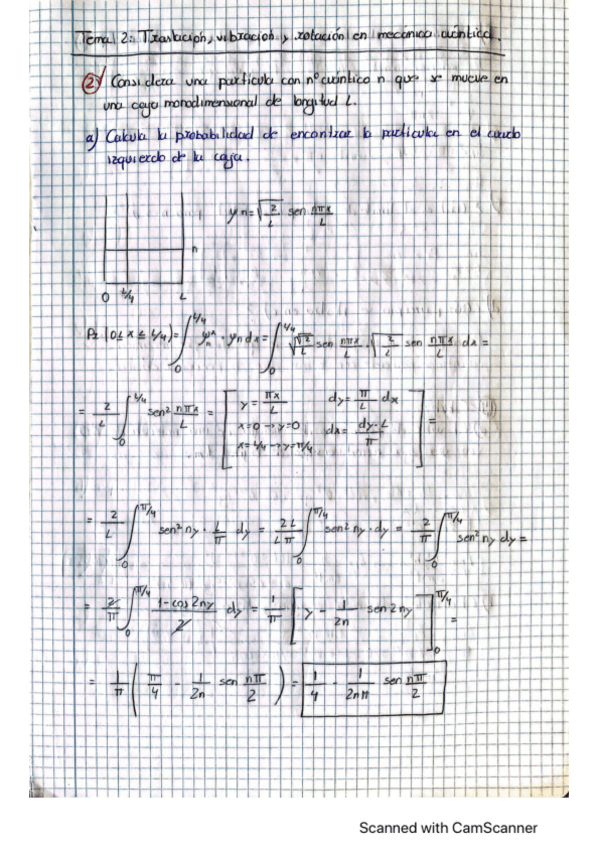 Tema 2: Traslación, vibración y rotación en mecánica cuántica.
2) Considera una partícula con nº cuántico n que se mueve en
una caja monodimensional de longitud L.
a) Calcula la probabilidad de encontrar la partícula en el cuarto
izquierdo de la caja.
yn = √(2/L) sen nπx/L
n
0 L/4 L
Pr (0 ≤ x ≤ L/4) = ∫₀^{L/4} yn* · yn dx = ∫₀^{L/4} √(2/L) sen nπx/L · √(2/L) sen nπx/L dx =
= 2/L ∫₀^{L/4} sen² nπx/L = [ y = πx/L dy = π/L dx
x=0 → y=0 dx = dy·L/π
x=L/4 → y=π/4 ] =
= 2/L ∫₀^{π/4} sen² ny · L/π dy = 2L/Lπ ∫₀^{π/4} sen² ny · dy = 2/π ∫₀^{π/4} sen² ny dy =
= 2/π ∫₀^{π/4} (1 - cos 2ny)/2 dy = 1/π [ y - 1/2n sen 2ny ]₀^{π/4} =
= 1/π ( π/4 - 1/2n sen nπ/2 ) = 1/4 - 1/2nπ sen nπ/2
Scanned with CamScanner